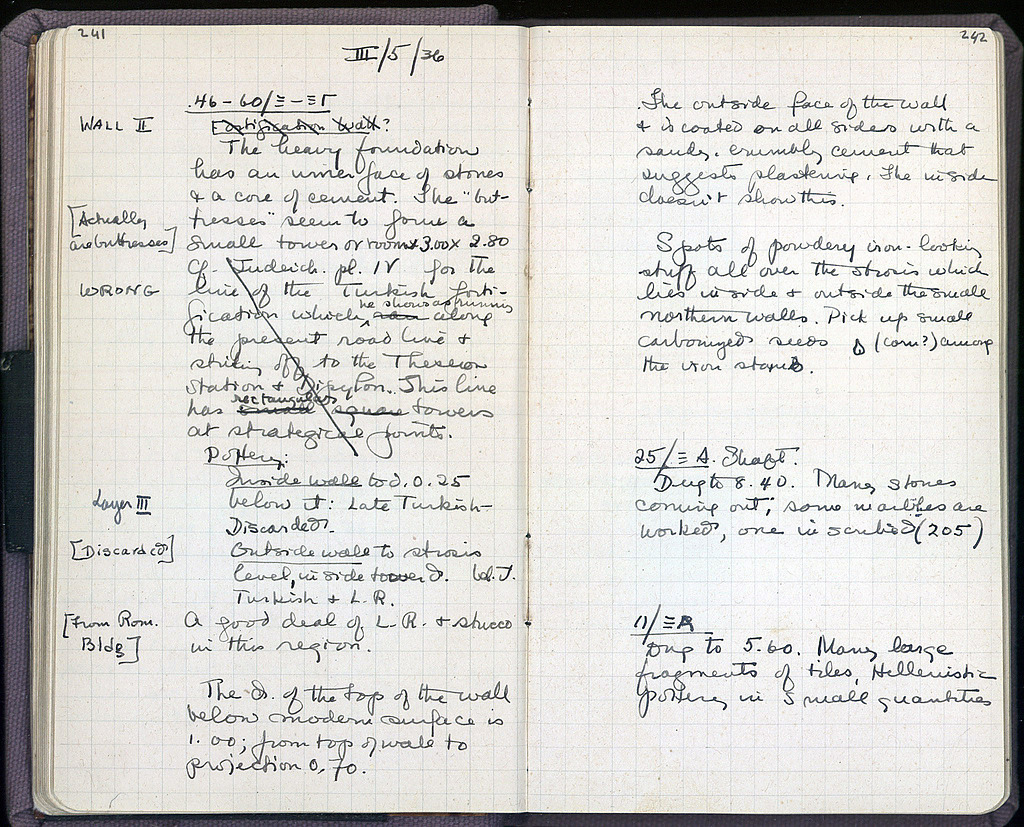 241
III/5/36
.46-60/Ξ-ΞΓ
WALL II
Fortification Wall?
The heavy foundation
has an inner face of stones
& a core of cement. The "but-
[Actually
tresses" seem to form a
are buttresses]
small tower or room x 3.00 x 2.80
Cf. Judeich. pl. IV for the
WRONG
line of the Turkish forti-
he shows as running
fication which ran along
the present road line &
striking off to the Theseion
station & Dipylon. This line
rectangular
has small square towers
at strategical points.
Pottery:
Inside wall to d. 0.25
Layer III
below it: Late Turkish-
Discarded.
[Discarded]
Outside wall to strosis
level, inside tower d.
Turkish & L.R.
[From Rom.
A good deal of L.R. & stucco
Bldg]
in this region.
The d. of the top of the wall
below modern surface is
1.00; from top of wall to
projection 0,70.
242
The outside face of the wall
& is coated on all sides with a
sandy, crumbly cement that
suggests plastering. The inside
doesn't show this.
Spots of powdery iron-looking
stuff all over the strosis which
lies inside & outside the small
northern walls. Pick up small
carbonized seeds (corn?) among
the iron stains.
25/Ξ Δ. Shaft.
Dug to 8.40. Many stones
coming out; some marbles are
worked, one inscribed (205)
11/Ξ
Dug to 5.60. Many large
fragments of tiles, Hellenistic
pottery in small quantities